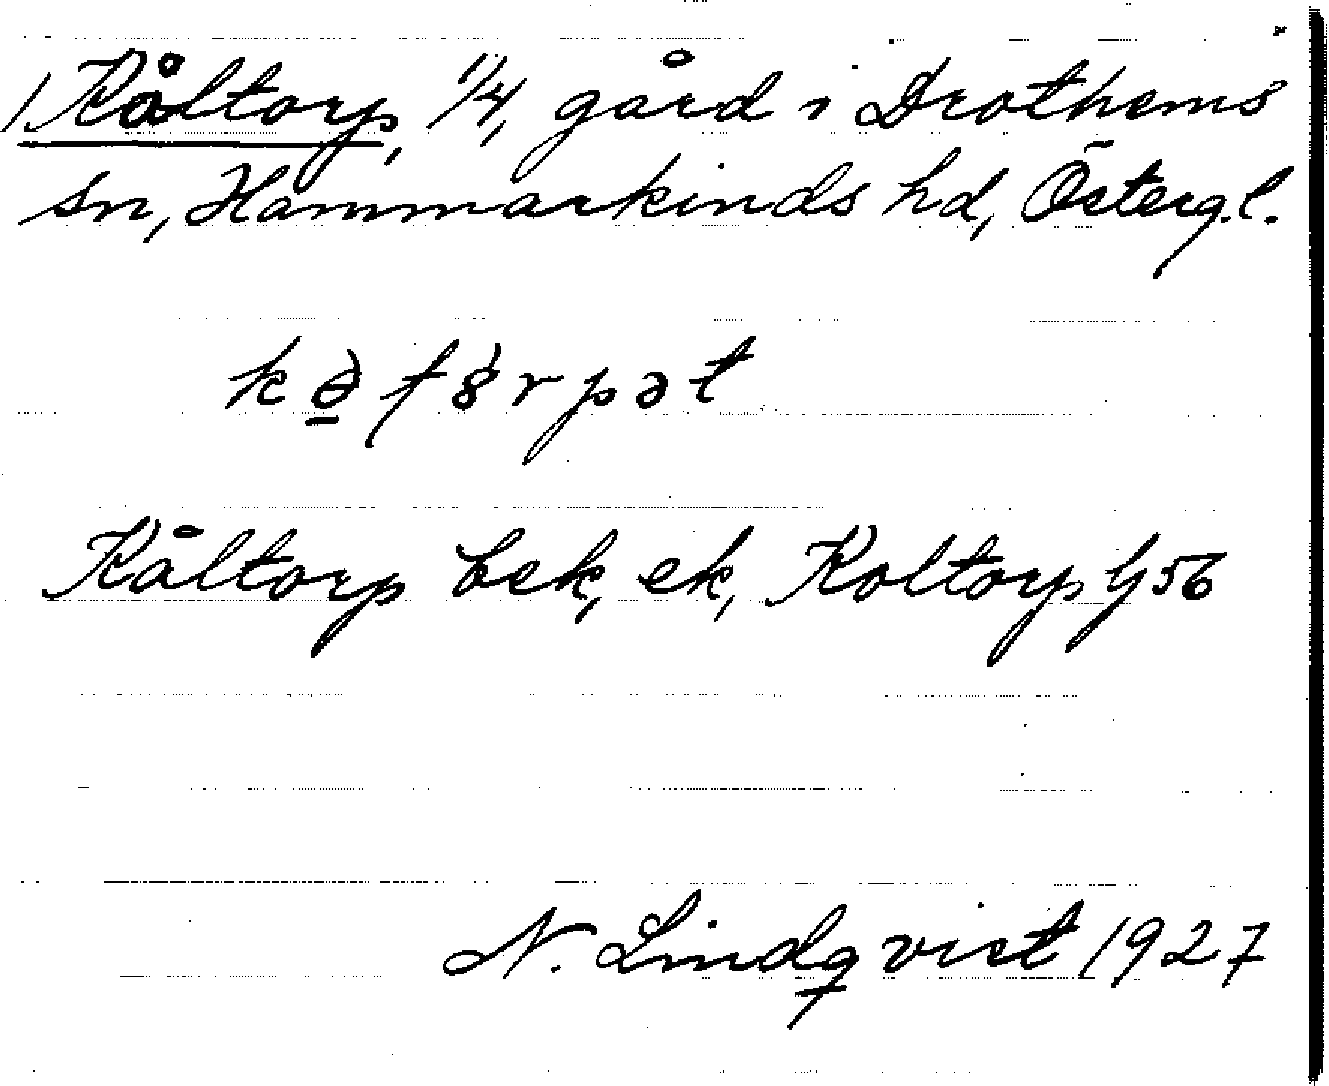 1 Kåltorp, 1/4, gård i Drothems
sn, Hammarkinds hd, Österg.l.
Kåltorp bek, ek, Koltorp Gj 56
N. Lindqvist 1927